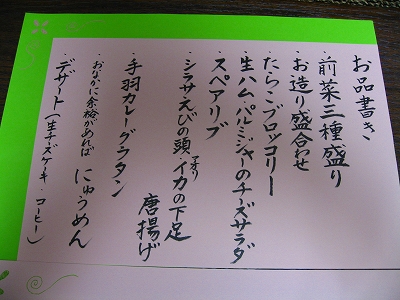 お品書き
・前菜三種盛り
・お造り盛合わせ
・たらこブロッコリー
・生ハム・パルミジャーのチーズサラダ
・スペアリブ
・シラサえびの頭・アオリイカの下足
唐揚げ
・手羽カレーグラタン
・おなかに余裕があれば にゅうめん
・デザート(生チーズケーキ・コーヒー)